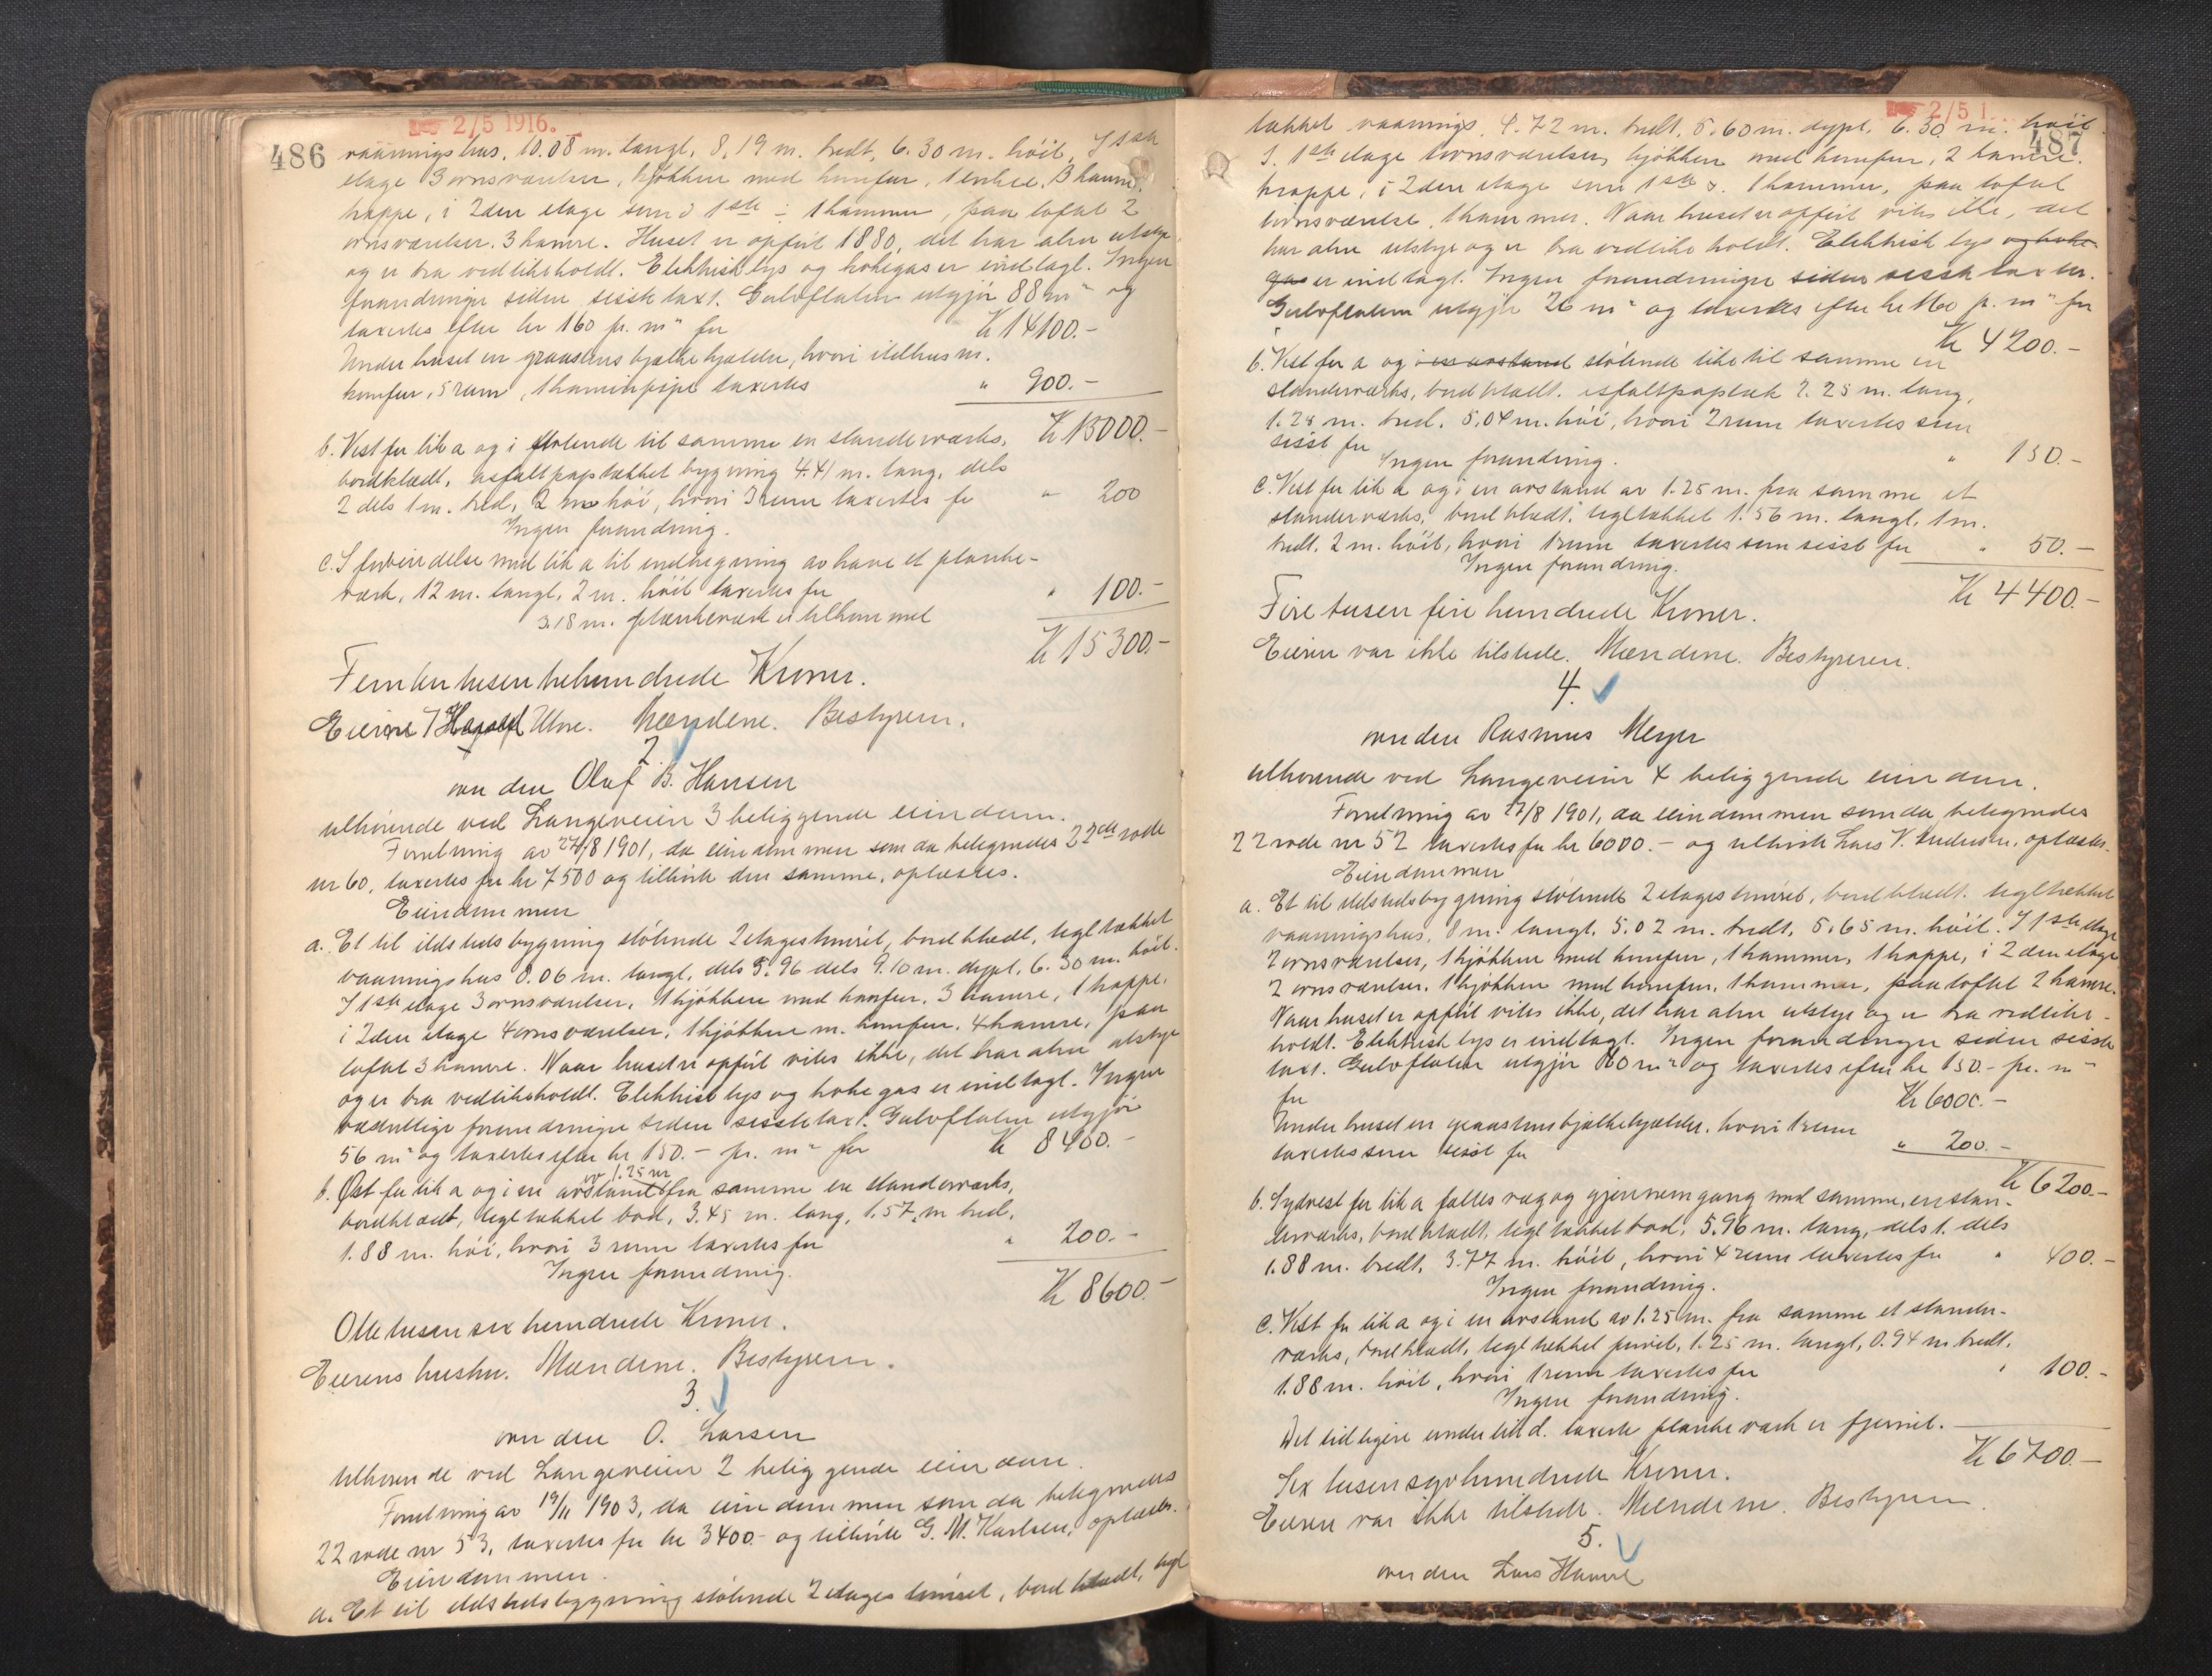 2/5 1916.
486
vaaningshus, 10.08 m. langt, 8.19 m. bredt, 6.30 m. höit. I 1ste
etage 3 ovnsværelser, kjökken med komfur, 1 entree, 3 kamre,
trappe, i 2den etage som i 1ste ÷ 1 kammer, paa loftet 2
ovnsværelser. 3 kamre. Huset er opfört 1880, det har alm utstyr
og er bra vedlikeholdt. Elektrisk lys og kokegas er indlagt. Ingen
forandringer siden sisste taxt. Gulvflaten utgjör 88 m² og
taxertes efter kr 160 pr. m² for Kr 14100.-
Under huset en graastens bjælkekjælder, hvori ildhus m.
komfur, 5 rum, 1 kaminpipe taxertes " 900.-
Kr 15000.-
b. Vest for lit a og i stötende til samme en standerværks,
bordklædt, asfaltpaptækket bygning 4.41 m. lang, dels
2 dels 1 m. bred, 2 m höi, hvori 3 rum taxertes for " 200
Ingen forandring.
c. I forbindelse med lit a til indhegning av have et planke-
værk, 12 m. langt, 2 m. höit taxertes for " 100.-
3.18 m. plankeværk er tilkommet
Kr 15300.-
Femten tusen trehundrede Kroner.
Eieren Utne. Mændene. Bestyreren.
2.
over den Olaf B. Hansen
tilhörende ved Langeveien 3 beliggende eiendom.
Forretning av 27/8 1901, da eiendommen som da betegnedes 22de rode
nr 60, taxertes for kr 7500 og tilhörte den samme, oplæstes.
Eiendommen
a. Et til ildstedsbygning stötende 2 etages tömret, bordklædt, tegltækket
vaaningshus 8.06 m. langt, dels 5.96 dels 9.10 m. dypt, 6.30 m. höit.
I 1ste etage 3 ovnsværelser, 1 kjökken med komfur, 3 kamre, 1 trappe,
i 2den etage 4 ovnsværelser, 1 kjökken m. komfur, 4 kamre, paa
loftet 3 kamre. Naar huset er opfört vites ikke, det har alm utstyr
og er bra vedlikeholdt. Elektrisk lys og kokegas er indlagt. Ingen
væsentlige forandringer siden sisste taxt. Gulvflaten utgjör
56 m² og taxertes efter kr 150.- pr. m² for Kr 8400.-
b. Öst for lit a og i en avstand av 1.25 m fra samme en standerværks,
bordklædt, tegltækket bod, 3.45 m. lang, 1.57 m bred,
1.88 m. höi, hvori 3 rum taxertes for " 200.-
Ingen forandring.
Kr 8600.-
Otte tusen sex hundrede Kroner.
Eierens hustru. Mændene. Bestyreren.
3.
over den O. Larsen
tilhörende ved Langeveien 2 beliggende eiendom.
Forretning av 19/11 1903, da eiendommen som da betegnedes
22 rode nr 53, taxertes for kr 3400.- og tilhörte G. M. Karlsen, oplæstes.
Eiendommen.
a. Et til ildstedsbygning stötende 2 etages tömret, bordklædt, tegl
2/5 1
487
tækket vaanings, 4.72 m. bredt, 5.60 m. dypt, 6.30 m. höit.
I 1ste etage ovnsværelser, kjökken med komfur, 2 kamre,
trappe, i 2den etage som 1ste 1 kammer, paa loftet
1 ovnsværelse, 1 kammer. Naar huset er opfört vites ikke, det
har alm utstyr og er bra vedlikeholdt. Elektrisk lys og koke-
gas er indlagt. Ingen forandringer siden sisste taxter.
Gulvflaten utgjör 26 m² og taxertes efter kr 160 pr. m² for
Kr 4200.-
b. Vest for a og i en avstand stötende like til samme en
standerværks, bordklædt, asfaltpaptæk 2.25 m. lang,
1.25 m. bred, 5.04 m. höi, hvori 2 rum taxertes som
sisst for " 150.-
Ingen forandring.
c. Vest for lit a og i en avstand av 1.25 m. fra samme et
standerværks, bordklædt, tegltækket 1.56 m. langt, 1 m.
bredt, 2 m. höit, hvori 1 rum taxertes som sisst for " 50.-
Ingen forandring.
Kr 4400.-
Fire tusen fire hundrede Kroner.
Eieren var ikke tilstede. Mændene. Bestyreren.
4.
over den Rasmus Meyer
tilhörende ved Langeveien 4 beliggende eiendom.
Forretning av 27/8 1901, da eiendommen som da betegnedes
22 rode nr 52 taxertes for kr 6000.- og tilhörte Lars V. Andersen, oplæstes.
Eiendommen
a. Et til ildstedsbygning stötende 2 etages tömret, bordklædt, tegltækket
vaaningshus, 8 m. langt, 5.02 m. bredt, 5.65 m. höit. I 1ste etage
2 ovnsværelser, 1 kjökken med komfur, 1 kammer, 1 trappe, i 2den etage
2 ovnsværelser, 1 kjökken med komfur, 1 kammer, paa loftet 2 kamre.
Naar huset er opfört vites ikke, det har alm utstyr og er bra vedlike-
holdt. Elektrisk lys er indlagt. Ingen forandringer siden sisste
taxt. Gulvflaten utgjör 40 m² og taxertes efter kr 150.- pr. m²
for Kr 6000.-
Under huset en graastens bjælkekjælder, hvori 1 rum
taxertes som sisst for " 200.-
Kr 6200.-
b. Sydvest for lit a fælles væg og gjennemgang med samme, en stan-
derværks, bordklædt, tegltækket bod, 5.96 m. lang, dels 1. dels
1.88 m. bredt, 3.77 m. höit, hvori 4 rum taxertes for " 400.-
Ingen forandring.
c. Vest for lit a og i en avstand av 1.25 m. fra samme et stander-
værks, bordklædt, tegltækket privét, 1.25 m. langt, 0.94 m bredt,
1.88 m. höit, hvori 1 rum taxertes for " 100.-
Ingen forandring.
Det tidligere under lit d. taxerte plankeværk er fjernet.
Kr 6700.-
Sex tusen syvhundrede Kroner.
Eieren var ikke tilstede. Mændene. Bestyreren.
5.
over den Lars